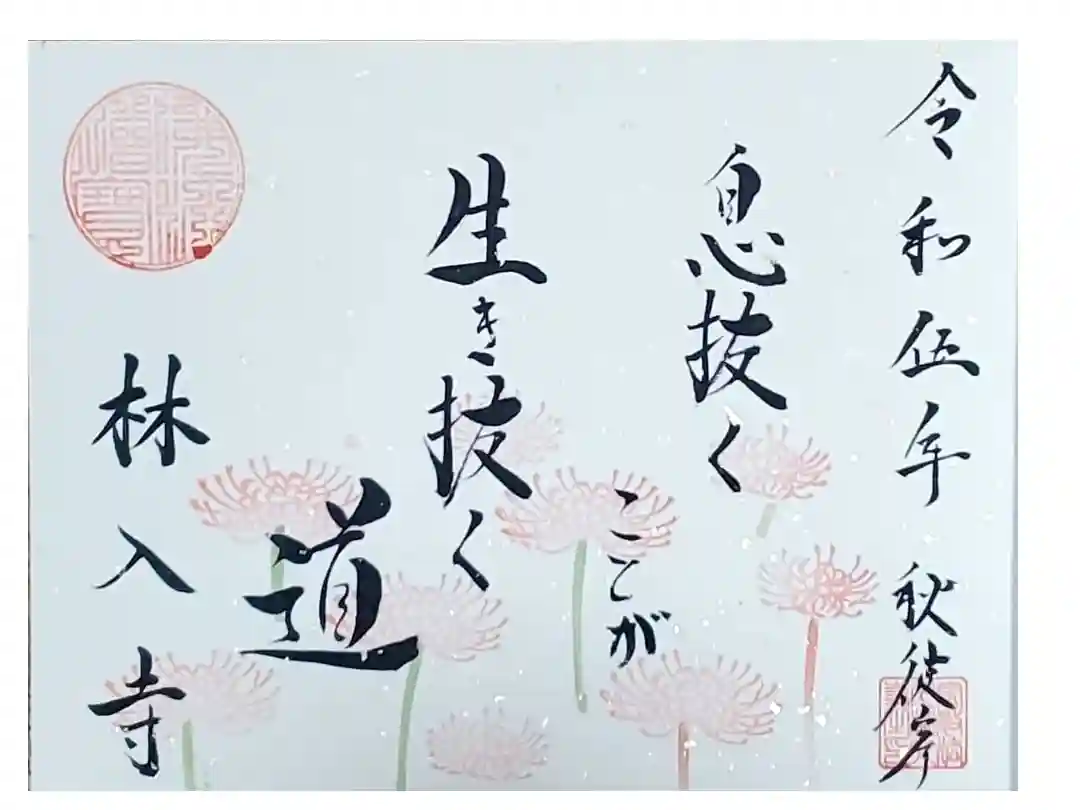 令和伍年 秋彼岸
息抜く
ことが
生き抜く
道
林入寺